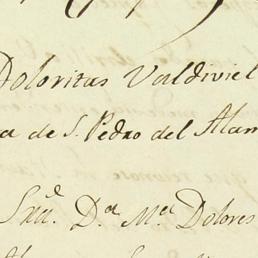 Doloritas Valdiviel
a de S. Pedro del Alam
Sra. D.a M.a Dolores